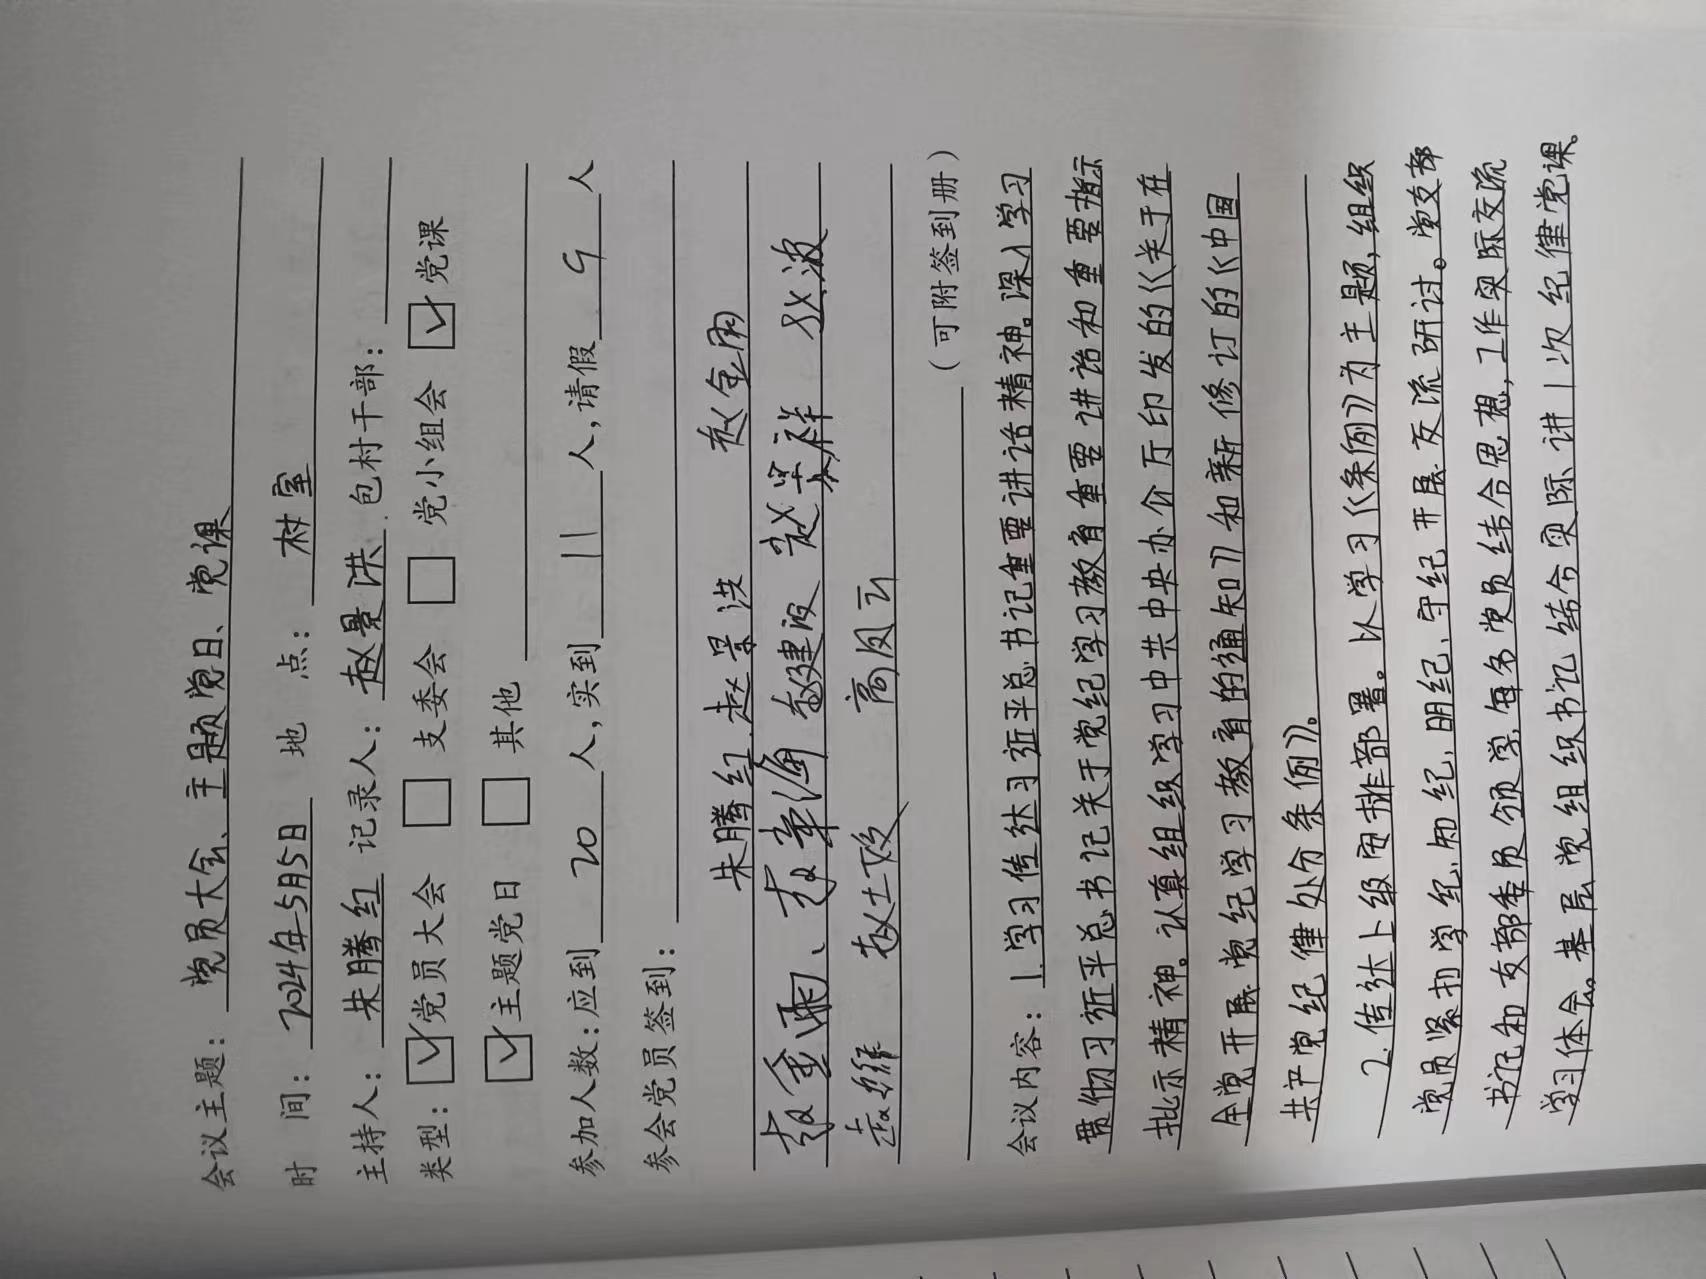 会议主题：党员大会、主题党日、党课
时 间：2024年5月5日 地 点：村室
主持人：朱腾红 记录人：赵景洪 包村干部：
类型：☑党员大会 □支委会 □党小组会 ☑党课
☑主题党日 □其他
参加人数：应到 20 人，实到 11 人，请假 9 人
参会党员签到：
朱腾红 赵景洪 赵金刚
赵金雨、赵章海 赵建设 赵景祥 赵波
赵继 赵士 高凤云
（可附签到册）
会议内容：1.学习传达习近平总书记重要讲话精神。深入学习
贯彻习近平总书记关于党纪学习教育重要讲话和重要指示
批示精神。认真组织学习中共中央办公厅印发的《关于在
全党开展党纪学习教育的通知》和新修订的《中国
共产党纪律处分条例》。
2.传达上级安排部署。以学习《条例》为主题，组织
党员紧扣学纪、知纪、明纪、守纪开展交流研讨。党支部
书记和支部委员领学，每名党员结合思想，工作实际交流
学习体会。基层党组织书记结合实际讲1次纪律党课。